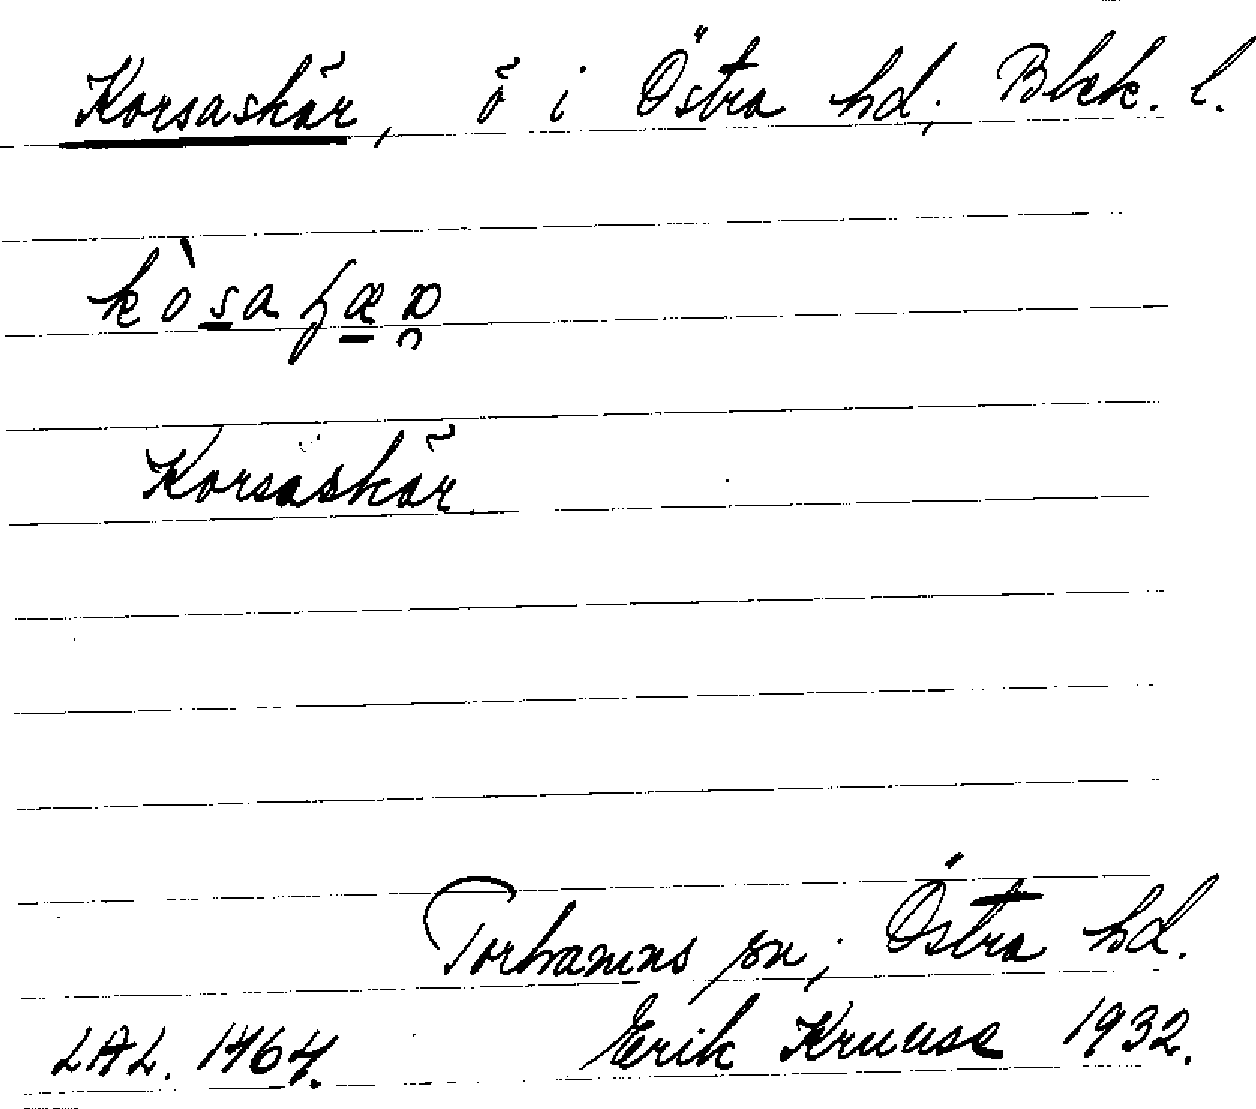 Korsaskär, ö i Östra hd, Blek. l.
Korsaskär
Torhamns sn, Östra hd.
LAL. 1464. Erik Kruuse 1932.